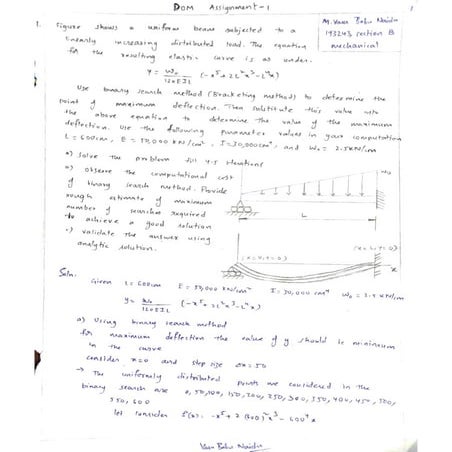 DOM Assignment-1
1
M. Vasu Babu Naidu
193243, section B
mechanical
1. Figure shows a uniform beam subjected to a
linearly increasing distributed load. The equation
for the resulting elastic curve is as under.
y = w₀/120EIL (-x⁵+2L²x³-L⁴x)
Use binary search method (Bracketing method) to determine the
point of maximum deflection. Then substitute this value into
the above equation to determine the value of the maximum
deflection. Use the following parameter values in your computation
L = 600cm, E = 50,000 KN/cm², I = 30,000cm⁴, and W₀ = 2.5KN/cm
a) solve the problem till 4-5 iterations
b) observe the computational cost
of binary search method. Provide
rough estimate of maximum
number of searches required
to achieve a good solution
c) validate the answer using
analytic solution.
w₀
L
(x=0, y=0)
(x=L, y=0)
x
Soln.
Given L = 600cm E = 50,000 KN/cm² I = 30,000 cm⁴ W₀ = 2.5 KN/cm
y = w₀/120EIL (-x⁵+2L²x³-L⁴x)
a) Using binary search method
for maximum deflection the value of y should be minimum
in the curve
consider x=0 and step size Δx=50
→ The uniformly distributed points are considered in the
binary search are 0, 50, 100, 150, 200, 250, 300, 350, 400, 450, 500,
550, 600
let consider f(x) = -x⁵+2(600)²x³-600⁴x
Vasu Babu Naidu